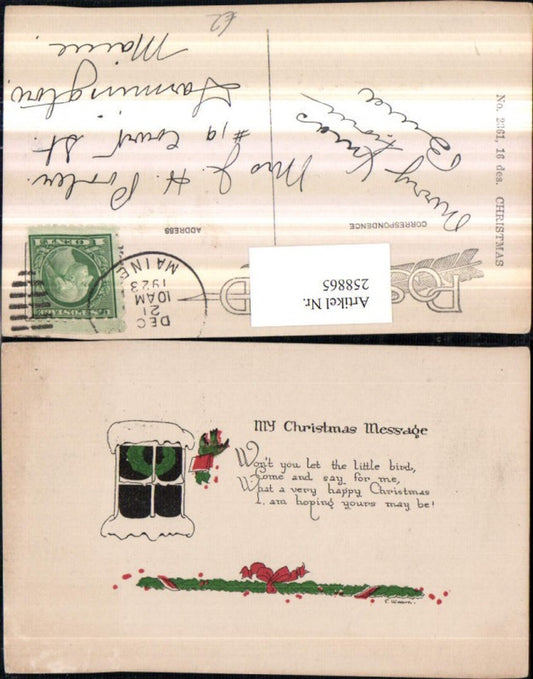 No. 2361, 16 des. CHRISTMAS
CORRESPONDENCE
ADDRESS
Merry Xmas
from
Mrs J. H.
#19 Court St.
Farmington
Maine
£2
DEC
21
10AM
1923
MAINE
U.S. POSTAGE
1 CENT 1
Artikel Nr.
258865
MY Christmas Message
Won't you let the little bird,
Come and say for me,
What a very happy Christmas
I am hoping yours may be!